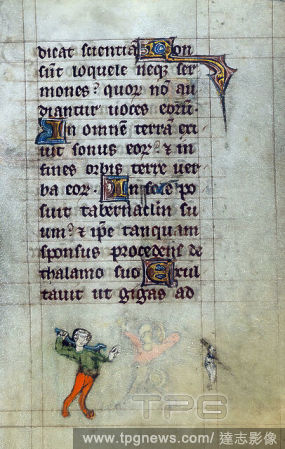 dicat scientia Non
sūt loquele neqz ser
mones? quor nō au
diantur uoces eorū.
In omnē terrā exi
uit sonus eor? & in
fines orbis terre uer
ba eor. In sole po
suit tabernaclm su
um? & ipe tanquam
sponsus procedens de
thalamo suo Exul
tauit ut gigas ad
TPG
www.tpgnews.com/達志影像